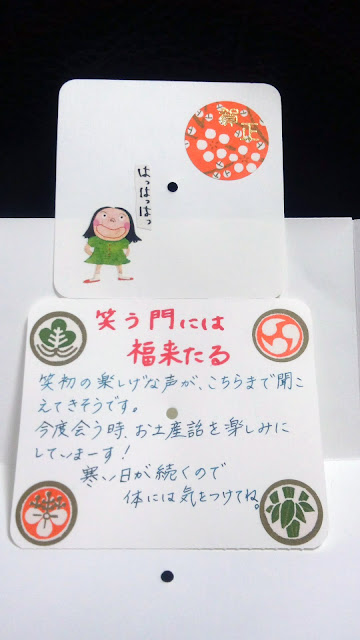 賀正
はっはっはっ
笑う門には
福来たる
笑初の楽しげな声が、こちらまで聞こ
えてきそうです。
今度会う時、お土産話を楽しみに
していまーす！
寒い日が続くので
体には気をつけてね。